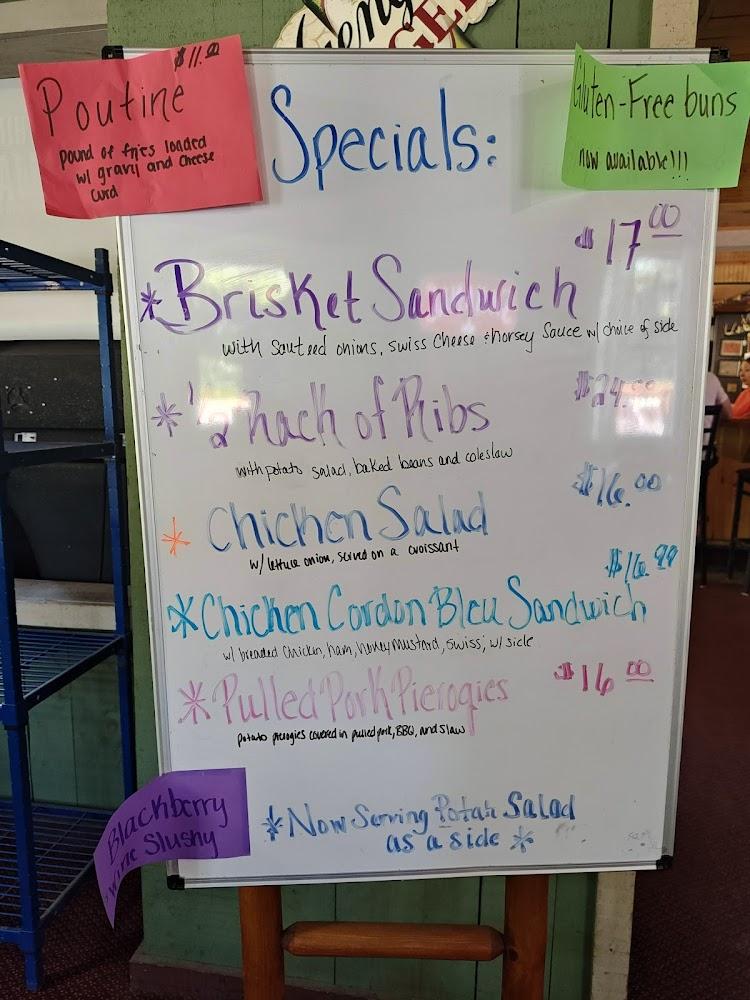 Poutine $11.00
pound of fries loaded
w/ gravy and cheese
curd
Specials:
Gluten-Free buns
now available!!!
$17.00
*Brisket Sandwich
with sauteed onions, swiss cheese + horsey sauce w/ choice of side
* 1/2 Rack of Ribs $24.00
with potato salad, baked beans and coleslaw
$16.00
* Chicken Salad
w/ lettuce onion, served on a croissant
$16.99
*Chicken Cordon Bleu Sandwich
w/ breaded chicken, ham, honey mustard, swiss, w/ side
*Pulled Pork Pierogies $16.00
potato pierogies covered in pulled pork, BBQ, and slaw
Blackberry
Wine Slushy
*Now Serving Potato Salad
as a side *